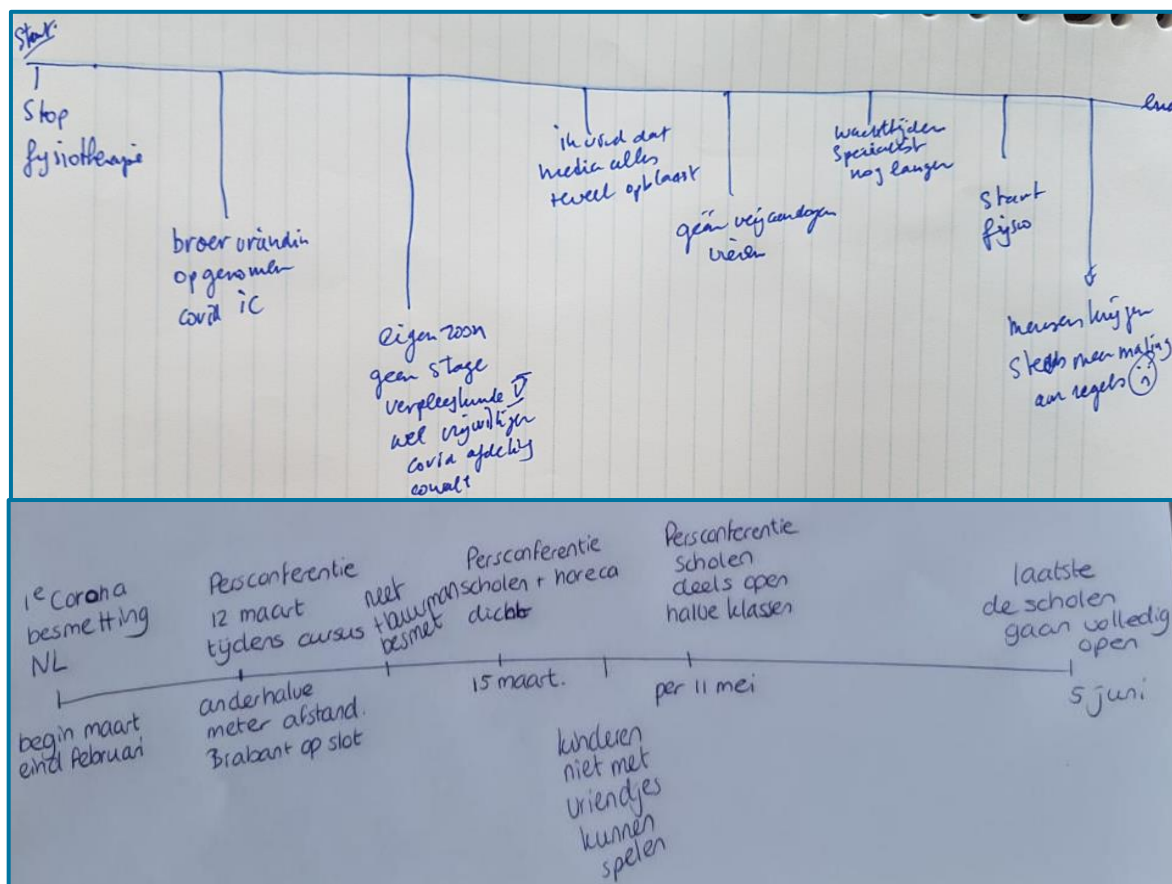 Start.
Stop
fysiotherapie
broer vriendin
opgenomen
covid ic
eigen zoon
geen stage
verpleegkunde V
wel vrijwilliger
covid afdeling
ik vind dat
media alles
teveel opblaast
geen verjaardagen
vieren
wachttijden
specialist
nog langer
Start
fysio
mensen krijgen
steeds meer maling
aan regels
1e Corona
besmetting
NL
begin maart
eind februari
Persconferentie
12 maart
tijdens cursus
anderhalve
meter afstand.
Brabant op slot
neef
besmet
Persconferentie
scholen + horeca
dicht
15 maart.
kinderen
niet met
vriendjes
kunnen
spelen
Persconferentie
scholen
deels open
halve klassen
per 11 mei
laatste
de scholen
gaan volledig
open
5 juni